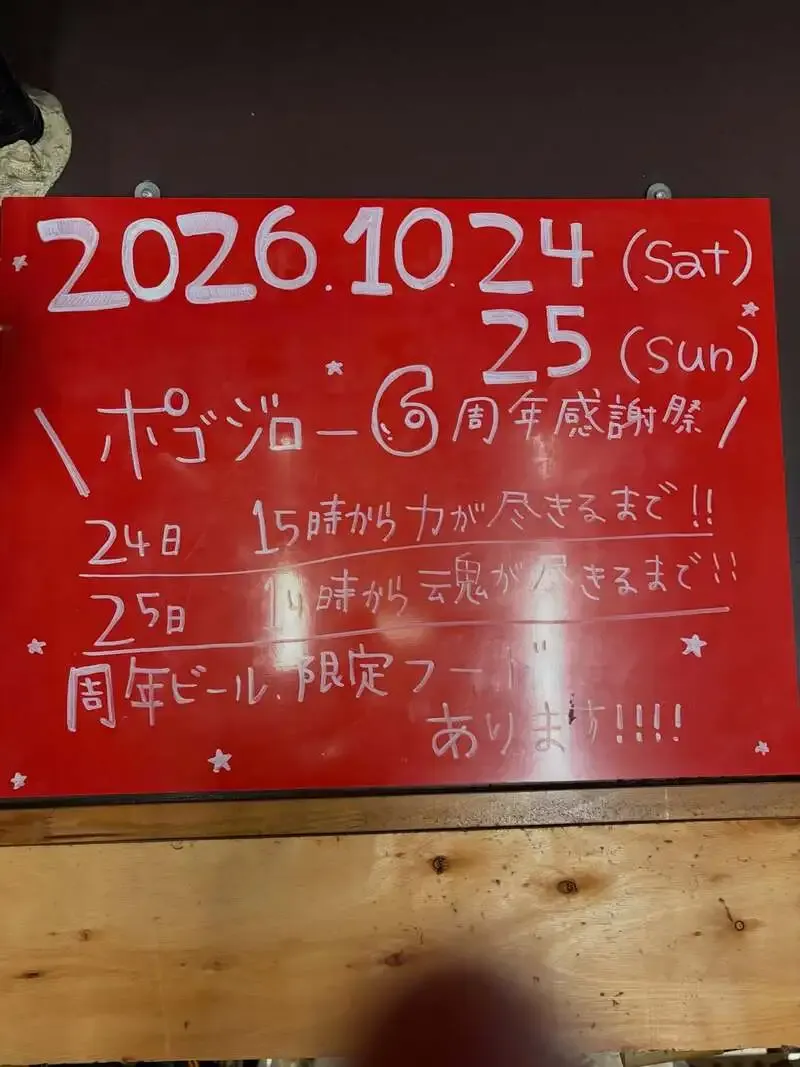 2026.10.24(Sat)
25(sun)
\ポゴジロー6周年感謝祭/
24日 15時から力が尽きるまで!!
25日 14時から魂が尽きるまで!!
周年ビール、限定フード
あります!!!!